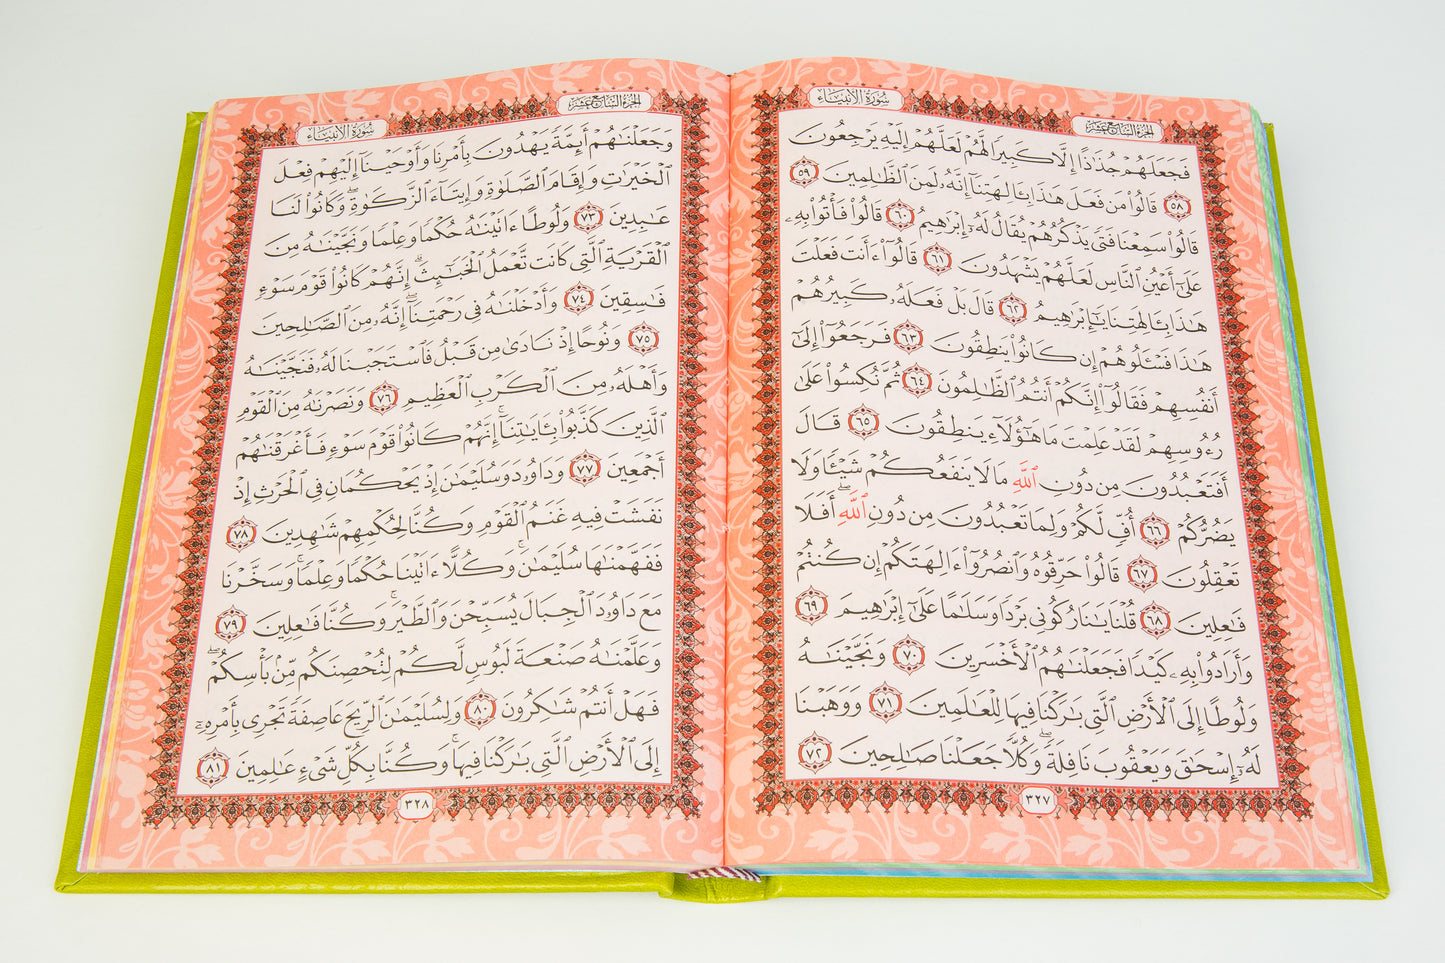 سُورَةُ الأَنبِيَاءِ
الجُزْءُ السَّابِعَ عَشَرَ
فَجَعَلَهُمۡ جُذَٰذًا إِلَّا كَبِيرٗا لَّهُمۡ لَعَلَّهُمۡ إِلَيۡهِ يَرۡجِعُونَ
٥٨ قَالُواْ مَن فَعَلَ هَٰذَا بِـَٔالِهَتِنَآ إِنَّهُۥ لَمِنَ ٱلظَّٰلِمِينَ ٥٩
قَالُواْ سَمِعۡنَا فَتٗى يَذۡكُرُهُمۡ يُقَالُ لَهُۥٓ إِبۡرَٰهِيمُ ٦٠ قَالُواْ فَأۡتُواْ بِهِۦ
عَلَىٰٓ أَعۡيُنِ ٱلنَّاسِ لَعَلَّهُمۡ يَشۡهَدُونَ ٦١ قَالُوٓاْ ءَأَنتَ فَعَلۡتَ
هَٰذَا بِـَٔالِهَتِنَا يَٰٓإِبۡرَٰهِيمُ ٦٢ قَالَ بَلۡ فَعَلَهُۥ كَبِيرُهُمۡ
هَٰذَا فَسۡـَٔلُوهُمۡ إِن كَانُواْ يَنطِقُونَ ٦٣ فَرَجَعُوٓاْ إِلَىٰٓ
أَنفُسِهِمۡ فَقَالُوٓاْ إِنَّكُمۡ أَنتُمُ ٱلظَّٰلِمُونَ ٦٤ ثُمَّ نُكِسُواْ عَلَىٰ
رُءُوسِهِمۡ لَقَدۡ عَلِمۡتَ مَا هَٰٓؤُلَآءِ يَنطِقُونَ ٦٥ قَالَ
أَفَتَعۡبُدُونَ مِن دُونِ ٱللَّهِ مَا لَا يَنفَعُكُمۡ شَيۡـٔٗا وَلَا
يَضُرُّكُمۡ ٦٦ أُفّٖ لَّكُمۡ وَلِمَا تَعۡبُدُونَ مِن دُونِ ٱللَّهِۚ أَفَلَا
تَعۡقِلُونَ ٦٧ قَالُواْ حَرِّقُوهُ وَٱنصُرُوٓاْ ءَالِهَتَكُمۡ إِن كُنتُمۡ
فَٰعِلِينَ ٦٨ قُلۡنَا يَٰنَارُ كُونِي بَرۡدٗا وَسَلَٰمًا عَلَىٰٓ إِبۡرَٰهِيمَ ٦٩
وَأَرَادُواْ بِهِۦ كَيۡدٗا فَجَعَلۡنَٰهُمُ ٱلۡأَخۡسَرِينَ ٧٠ وَنَجَّيۡنَٰهُ
وَلُوطًا إِلَى ٱلۡأَرۡضِ ٱلَّتِي بَٰرَكۡنَا فِيهَا لِلۡعَٰلَمِينَ ٧١ وَوَهَبۡنَا
لَهُۥٓ إِسۡحَٰقَ وَيَعۡقُوبَ نَافِلَةٗۖ وَكُلّٗا جَعَلۡنَا صَٰلِحِينَ ٧٢
٣٢٧
الجُزْءُ السَّابِعَ عَشَرَ
سُورَةُ الأَنبِيَاءِ
وَجَعَلۡنَٰهُمۡ أَئِمَّةٗ يَهۡدُونَ بِأَمۡرِنَا وَأَوۡحَيۡنَآ إِلَيۡهِمۡ فِعۡلَ
ٱلۡخَيۡرَٰتِ وَإِقَامَ ٱلصَّلَوٰةِ وَإِيتَآءَ ٱلزَّكَوٰةِۖ وَكَانُواْ لَنَا
عَٰبِدِينَ ٧٣ وَلُوطًا ءَاتَيۡنَٰهُ حُكۡمٗا وَعِلۡمٗا وَنَجَّيۡنَٰهُ مِنَ
ٱلۡقَرۡيَةِ ٱلَّتِي كَانَت تَّعۡمَلُ ٱلۡخَبَٰٓئِثَۚ إِنَّهُمۡ كَانُواْ قَوۡمَ سَوۡءٖ
فَٰسِقِينَ ٧٤ وَأَدۡخَلۡنَٰهُ فِي رَحۡمَتِنَآۖ إِنَّهُۥ مِنَ ٱلصَّٰلِحِينَ
٧٥ وَنُوحًا إِذۡ نَادَىٰ مِن قَبۡلُ فَٱسۡتَجَبۡنَا لَهُۥ فَنَجَّيۡنَٰهُ
وَأَهۡلَهُۥ مِنَ ٱلۡكَرۡبِ ٱلۡعَظِيمِ ٧٦ وَنَصَرۡنَٰهُ مِنَ ٱلۡقَوۡمِ
ٱلَّذِينَ كَذَّبُواْ بِـَٔايَٰتِنَآۚ إِنَّهُمۡ كَانُواْ قَوۡمَ سَوۡءٖ فَأَغۡرَقۡنَٰهُمۡ
أَجۡمَعِينَ ٧٧ وَدَاوُۥدَ وَسُلَيۡمَٰنَ إِذۡ يَحۡكُمَانِ فِي ٱلۡحَرۡثِ إِذۡ
نَفَشَتۡ فِيهِ غَنَمُ ٱلۡقَوۡمِ وَكُنَّا لِحُكۡمِهِمۡ شَٰهِدِينَ ٧٨
فَفَهَّمۡنَٰهَا سُلَيۡمَٰنَۚ وَكُلًّا ءَاتَيۡنَا حُكۡمٗا وَعِلۡمٗاۚ وَسَخَّرۡنَا
مَعَ دَاوُۥدَ ٱلۡجِبَالَ يُسَبِّحۡنَ وَٱلطَّيۡرَۚ وَكُنَّا فَٰعِلِينَ ٧٩
وَعَلَّمۡنَٰهُ صَنۡعَةَ لَبُوسٖ لَّكُمۡ لِتُحۡصِنَكُم مِّنۢ بَأۡسِكُمۡۖ
فَهَلۡ أَنتُمۡ شَٰكِرُونَ ٨٠ وَلِسُلَيۡمَٰنَ ٱلرِّيحَ عَاصِفَةٗ تَجۡرِي بِأَمۡرِهِۦٓ
إِلَى ٱلۡأَرۡضِ ٱلَّتِي بَٰرَكۡنَا فِيهَاۚ وَكُنَّا بِكُلِّ شَيۡءٍ عَٰلِمِينَ ٨١
٣٢٨